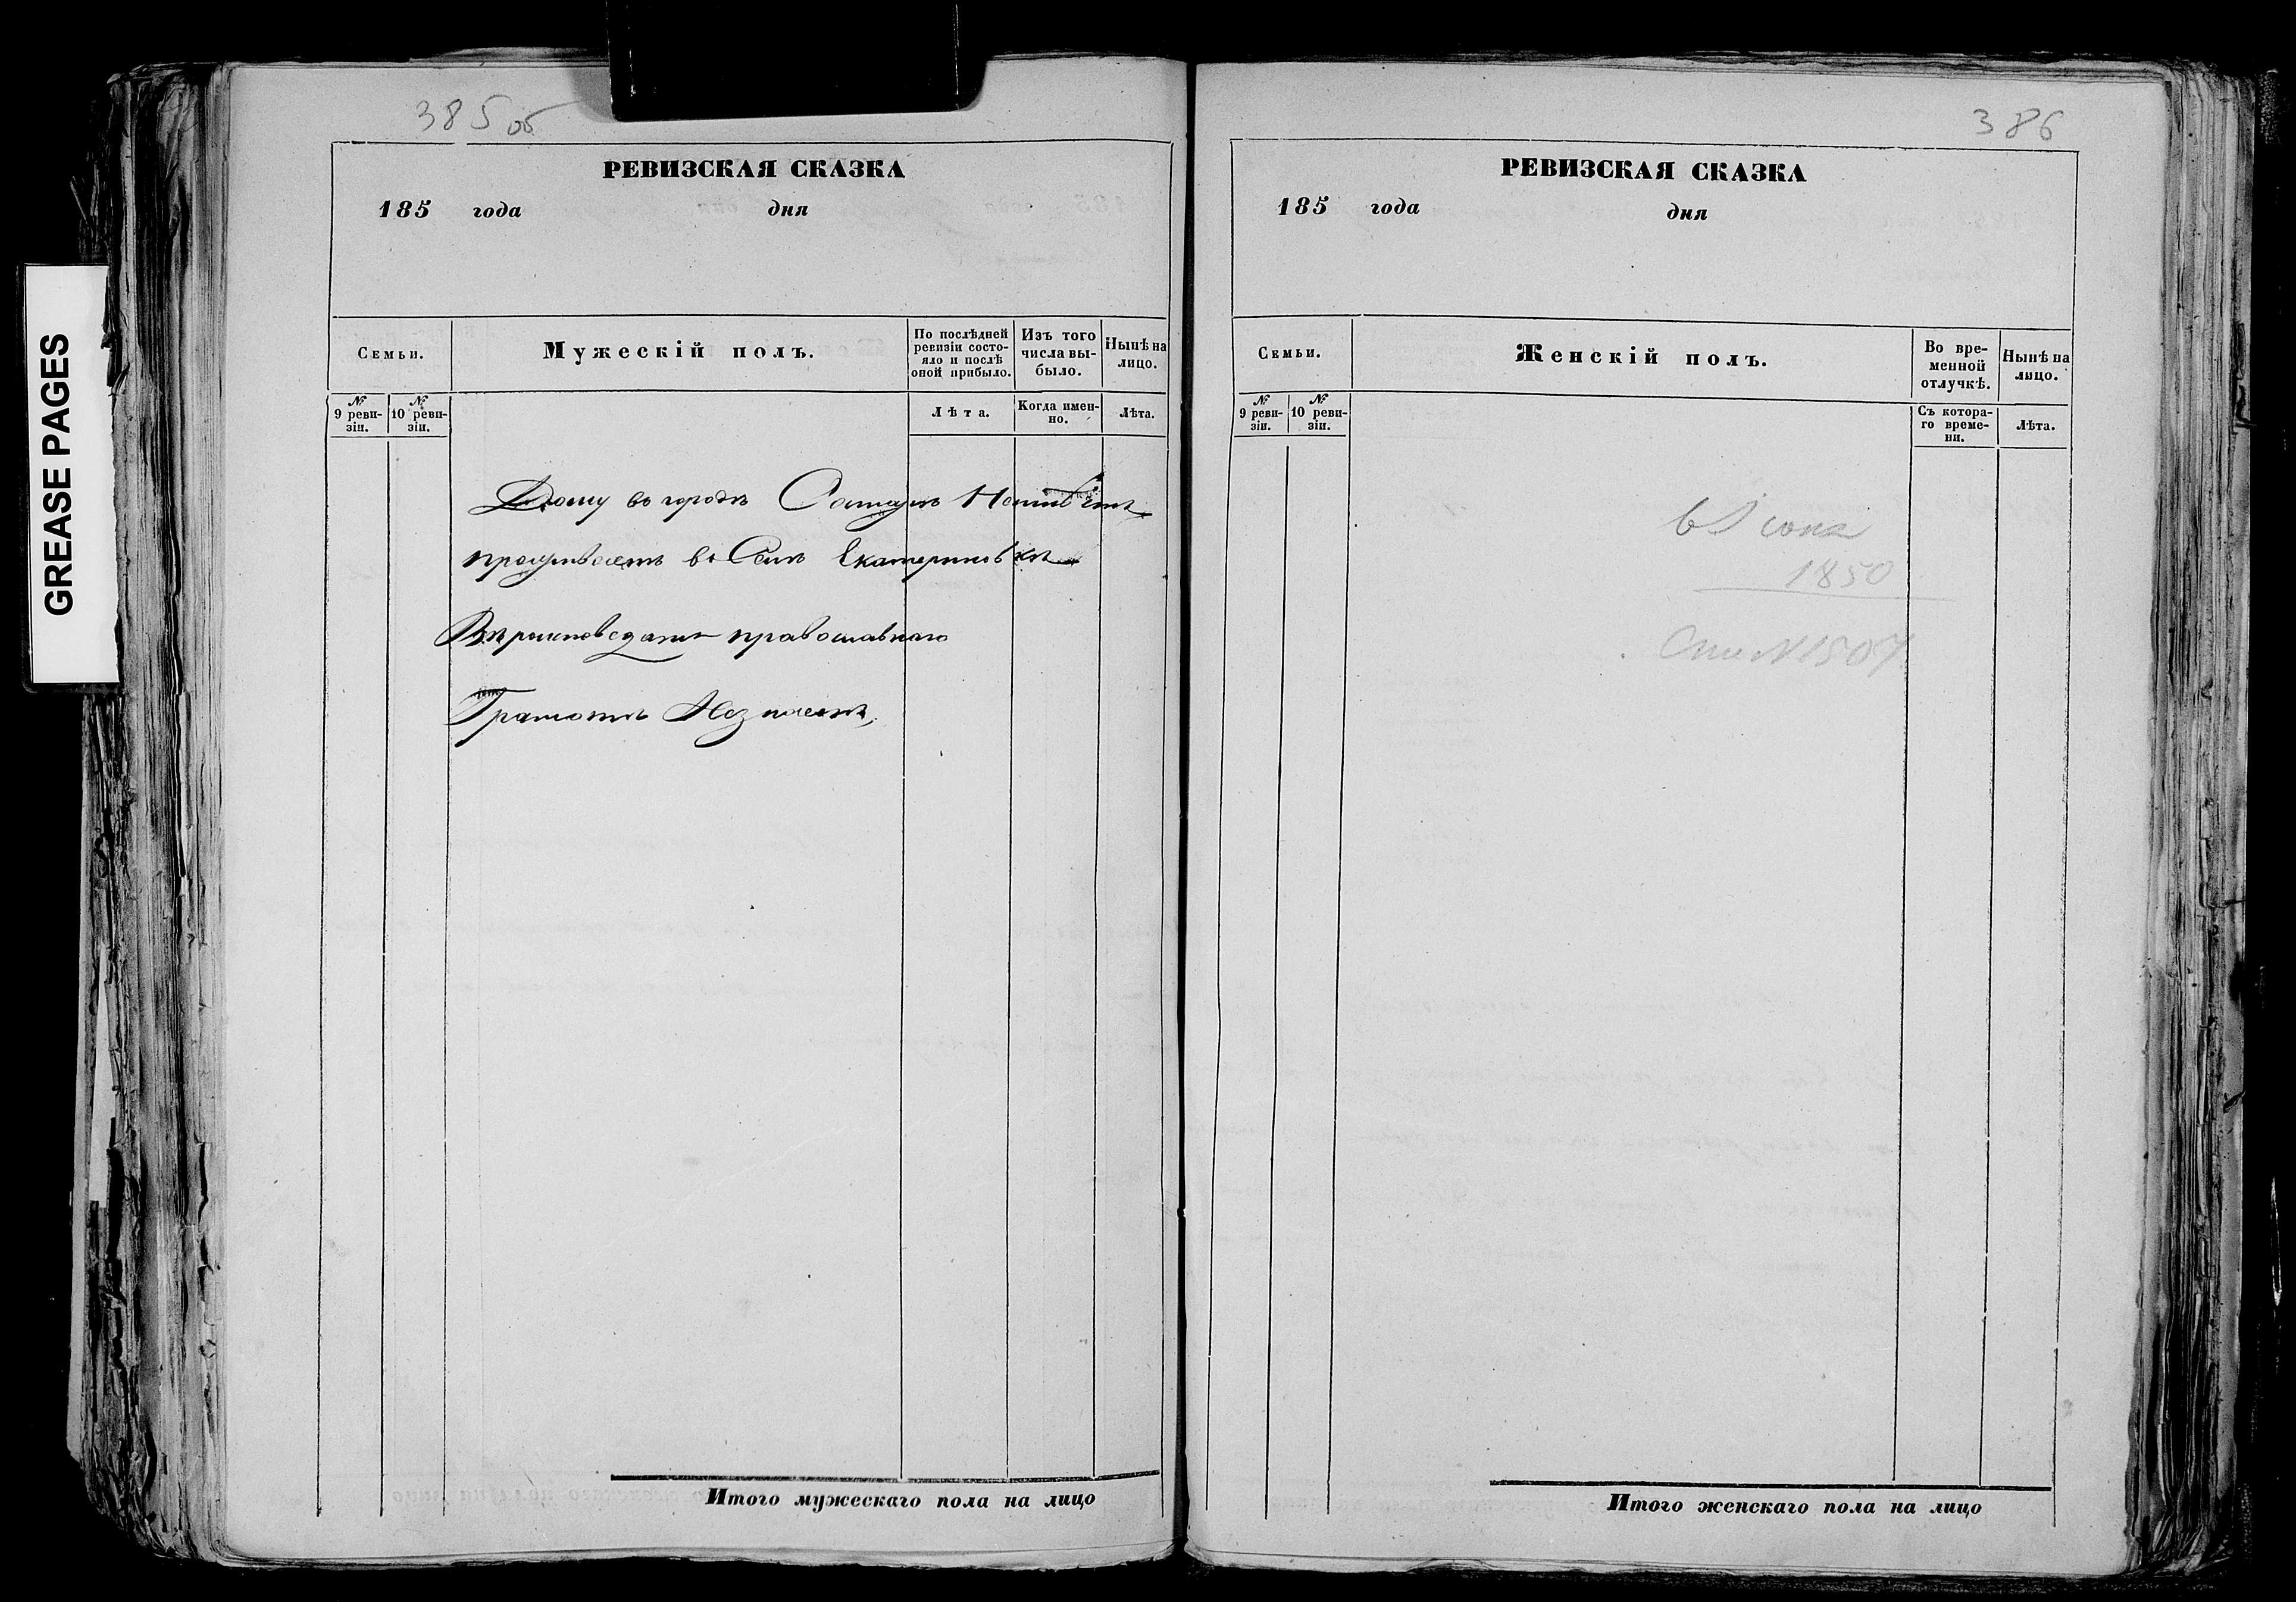 GREASE PAGES
385 об
РЕВИЗСКАЯ СКАЗКА
185 года дня
Семьи.
Мужескій полъ.
По послѣдней ревизіи состояло и послѣ оной прибыло.
Изъ того числа выбыло.
Нынѣ на лицо.
№ 9 ревизіи.
№ 10 ревизіи.
Лѣта.
Когда именно.
Лѣта.
Дому въ городѣ
проживаетъ въ Селѣ Екатериновкѣ
Вѣроисповеданія православнаго
Грамотѣ Незнаетъ,
Итого мужескаго пола на лицо
386
РЕВИЗСКАЯ СКАЗКА
185 года дня
Семьи.
Женскій полъ.
Во временной отлучкѣ.
Нынѣ на лицо.
№ 9 ревизіи.
№ 10 ревизіи.
Съ котораго времени.
Лѣта.
1850
Итого женскаго пола на лицо